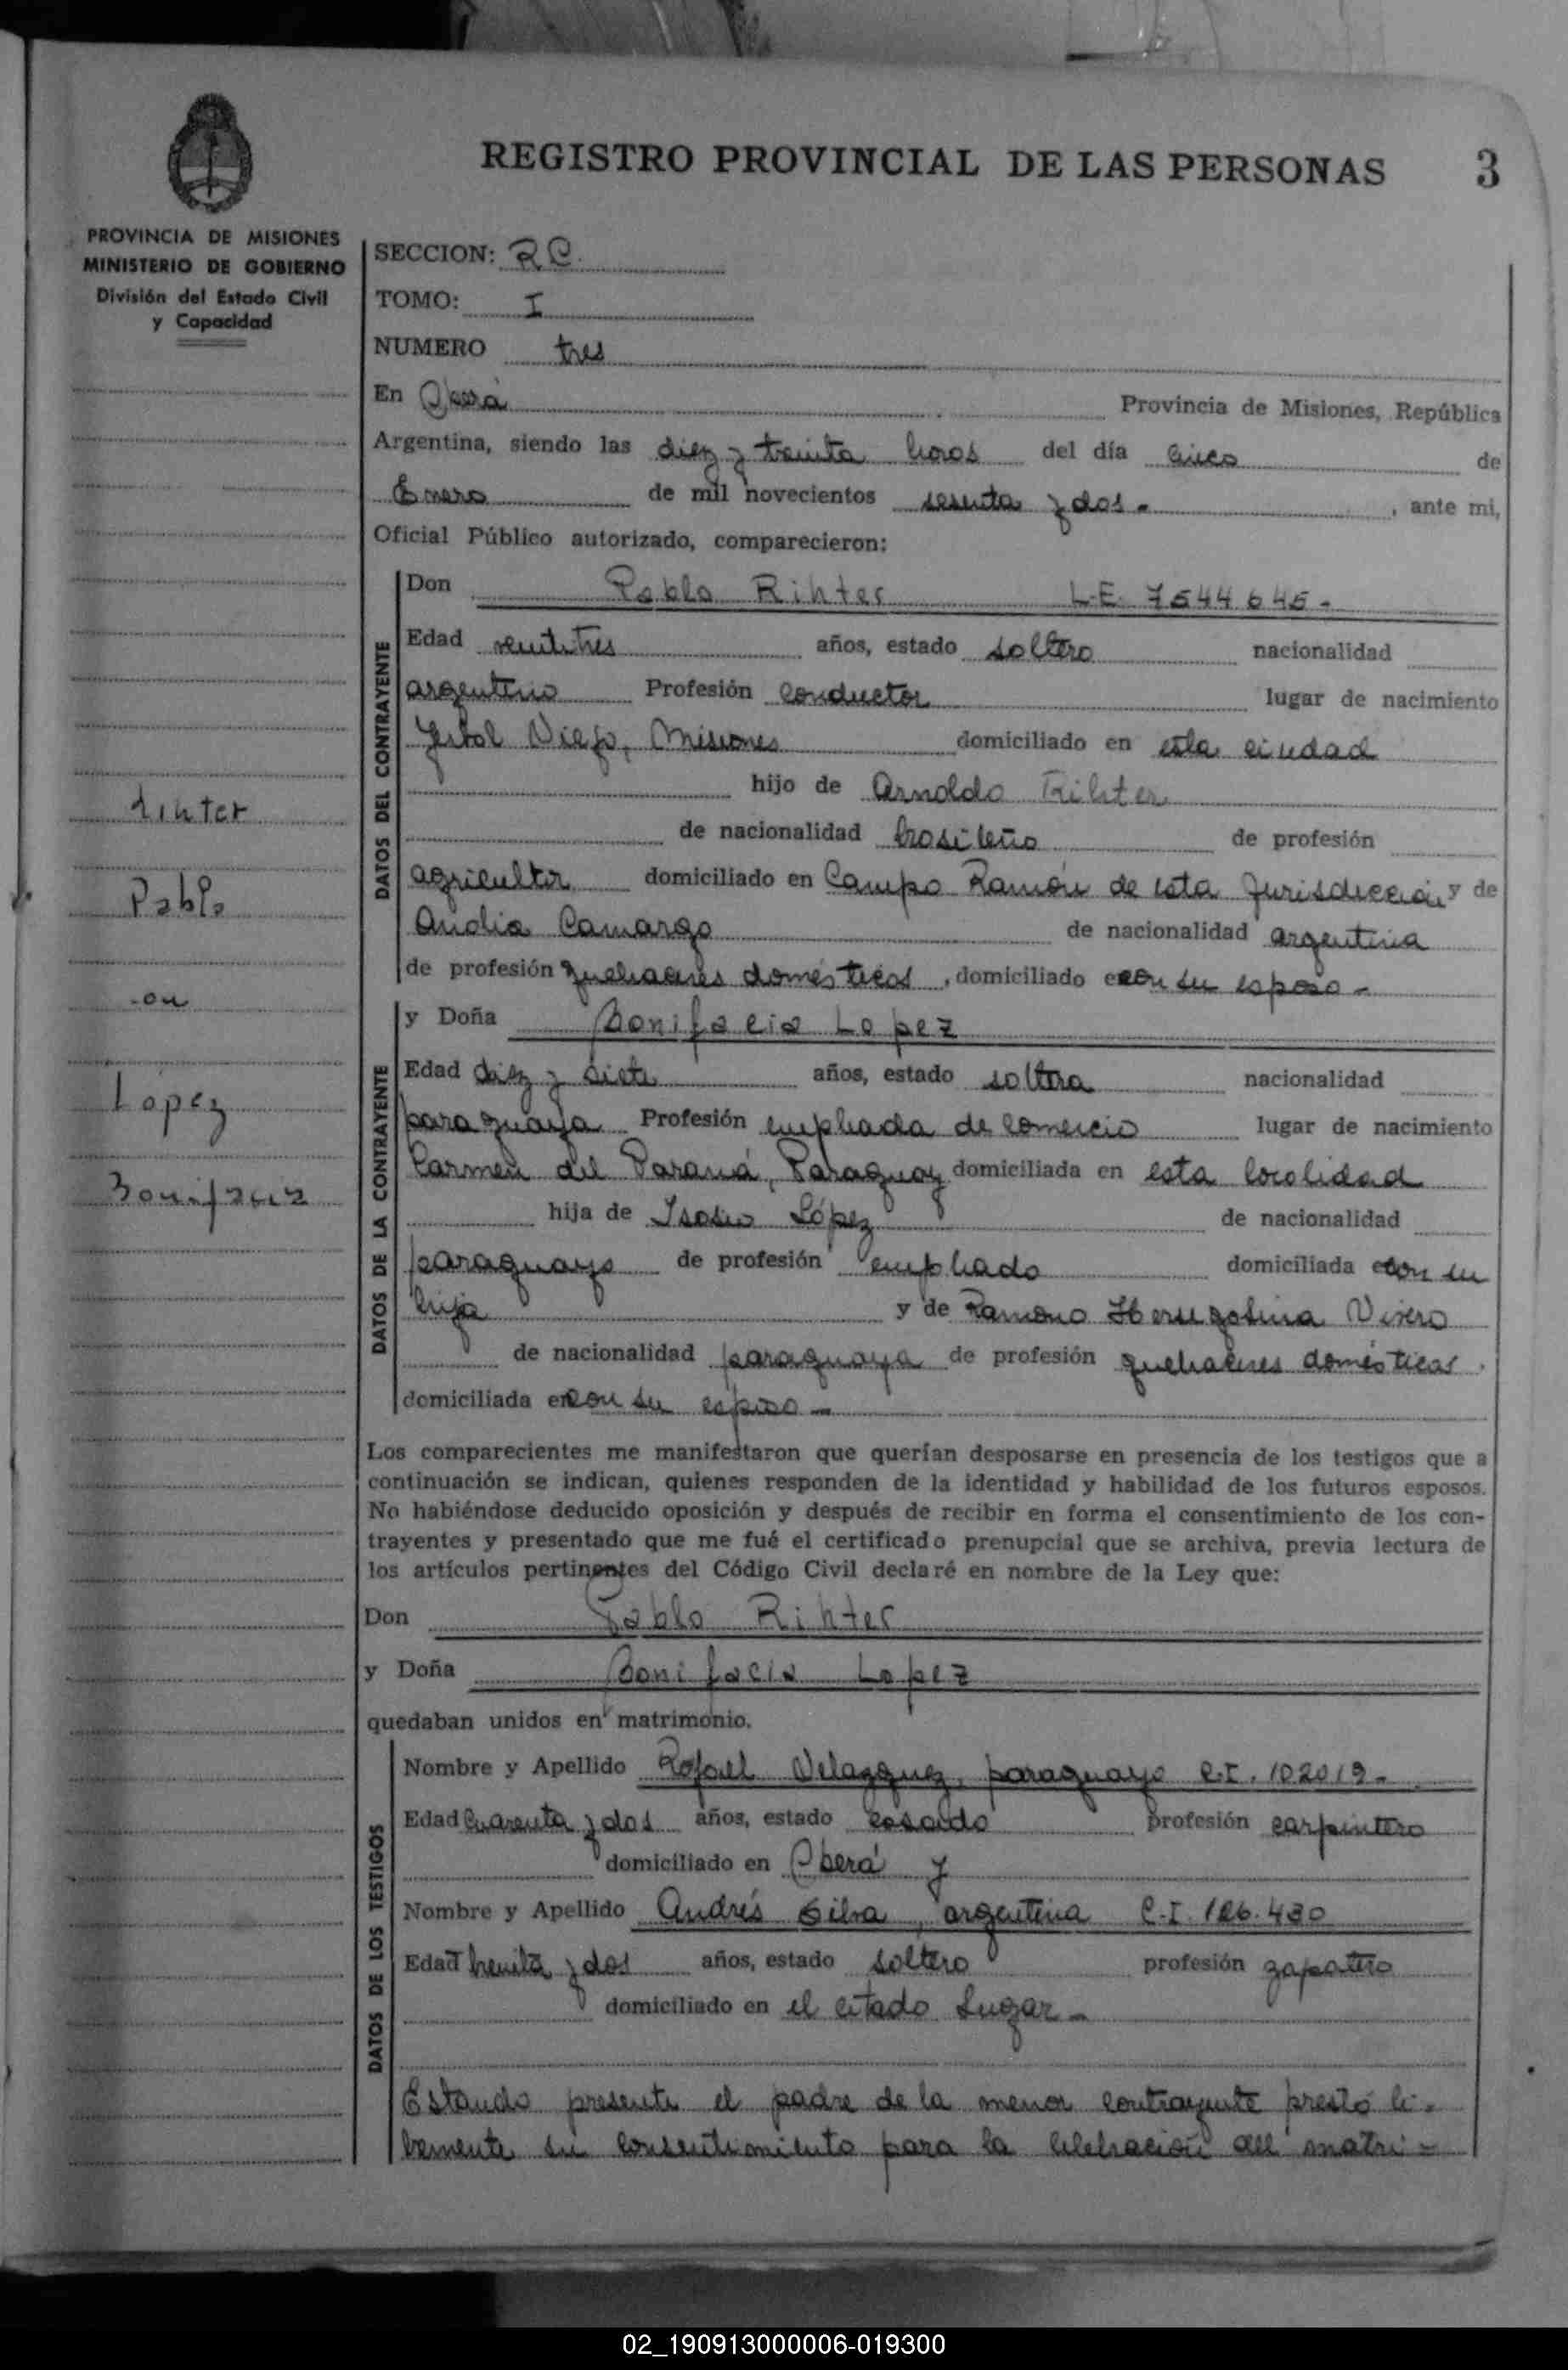 REGISTRO PROVINCIAL DE LAS PERSONAS 3
PROVINCIA DE MISIONES
MINISTERIO DE GOBIERNO
División del Estado Civil
y Capacidad
Rihter
Pablo
con
López
Bonifacia
SECCION: RC.
TOMO: I
NUMERO tres
En Oberá Provincia de Misiones, República
Argentina, siendo las diez y treinta horas del día cinco de
Enero de mil novecientos sesenta y dos - , ante mi,
Oficial Público autorizado, comparecieron:
DATOS DEL CONTRAYENTE
Don Pablo Rihter L.E. 7544645 -
Edad veintitres años, estado soltero nacionalidad
argentino Profesión conductor lugar de nacimiento
Yerbal Viejo, Misiones domiciliado en esta ciudad
hijo de Arnoldo Rihter
de nacionalidad brasileño de profesión
agricultor domiciliado en Campo Ramón de esta Jurisdicción y de
Camargo de nacionalidad argentina
de profesión quehaceres domésticos , domiciliado con su esposo -
DATOS DE LA CONTRAYENTE
y Doña Bonifacia Lopez
Edad diez y siete años, estado soltera nacionalidad
paraguaya Profesión empleada de comercio lugar de nacimiento
Carmen del Paraná, Paraguay domiciliada en esta localidad
hija de López de nacionalidad
paraguayo de profesión empleado domiciliada con su
hija y de Ramona Vivero
de nacionalidad paraguaya de profesión quehaceres domésticos.
domiciliada en con su esposo -
Los comparecientes me manifestaron que querían desposarse en presencia de los testigos que a
continuación se indican, quienes responden de la identidad y habilidad de los futuros esposos.
No habiéndose deducido oposición y después de recibir en forma el consentimiento de los con-
trayentes y presentado que me fué el certificado prenupcial que se archiva, previa lectura de
los artículos pertinentes del Código Civil declaré en nombre de la Ley que:
Don Pablo Rihter
y Doña Bonifacia Lopez
quedaban unidos en matrimonio.
DATOS DE LOS TESTIGOS
Nombre y Apellido Rafael Velazquez, paraguayo C.I. 102019 -
Edad cuarenta y dos años, estado casado profesión carpintero
domiciliado en Oberá y
Nombre y Apellido Andrés Silva, argentina C.I. 126.430
Edad treinta y dos años, estado soltero profesión zapatero
domiciliado en el citado Lugar -
Estando presente el padre de la menor contrayente prestó li-
bremente su consentimiento para la celebración del matri-
02_190913000006-019300